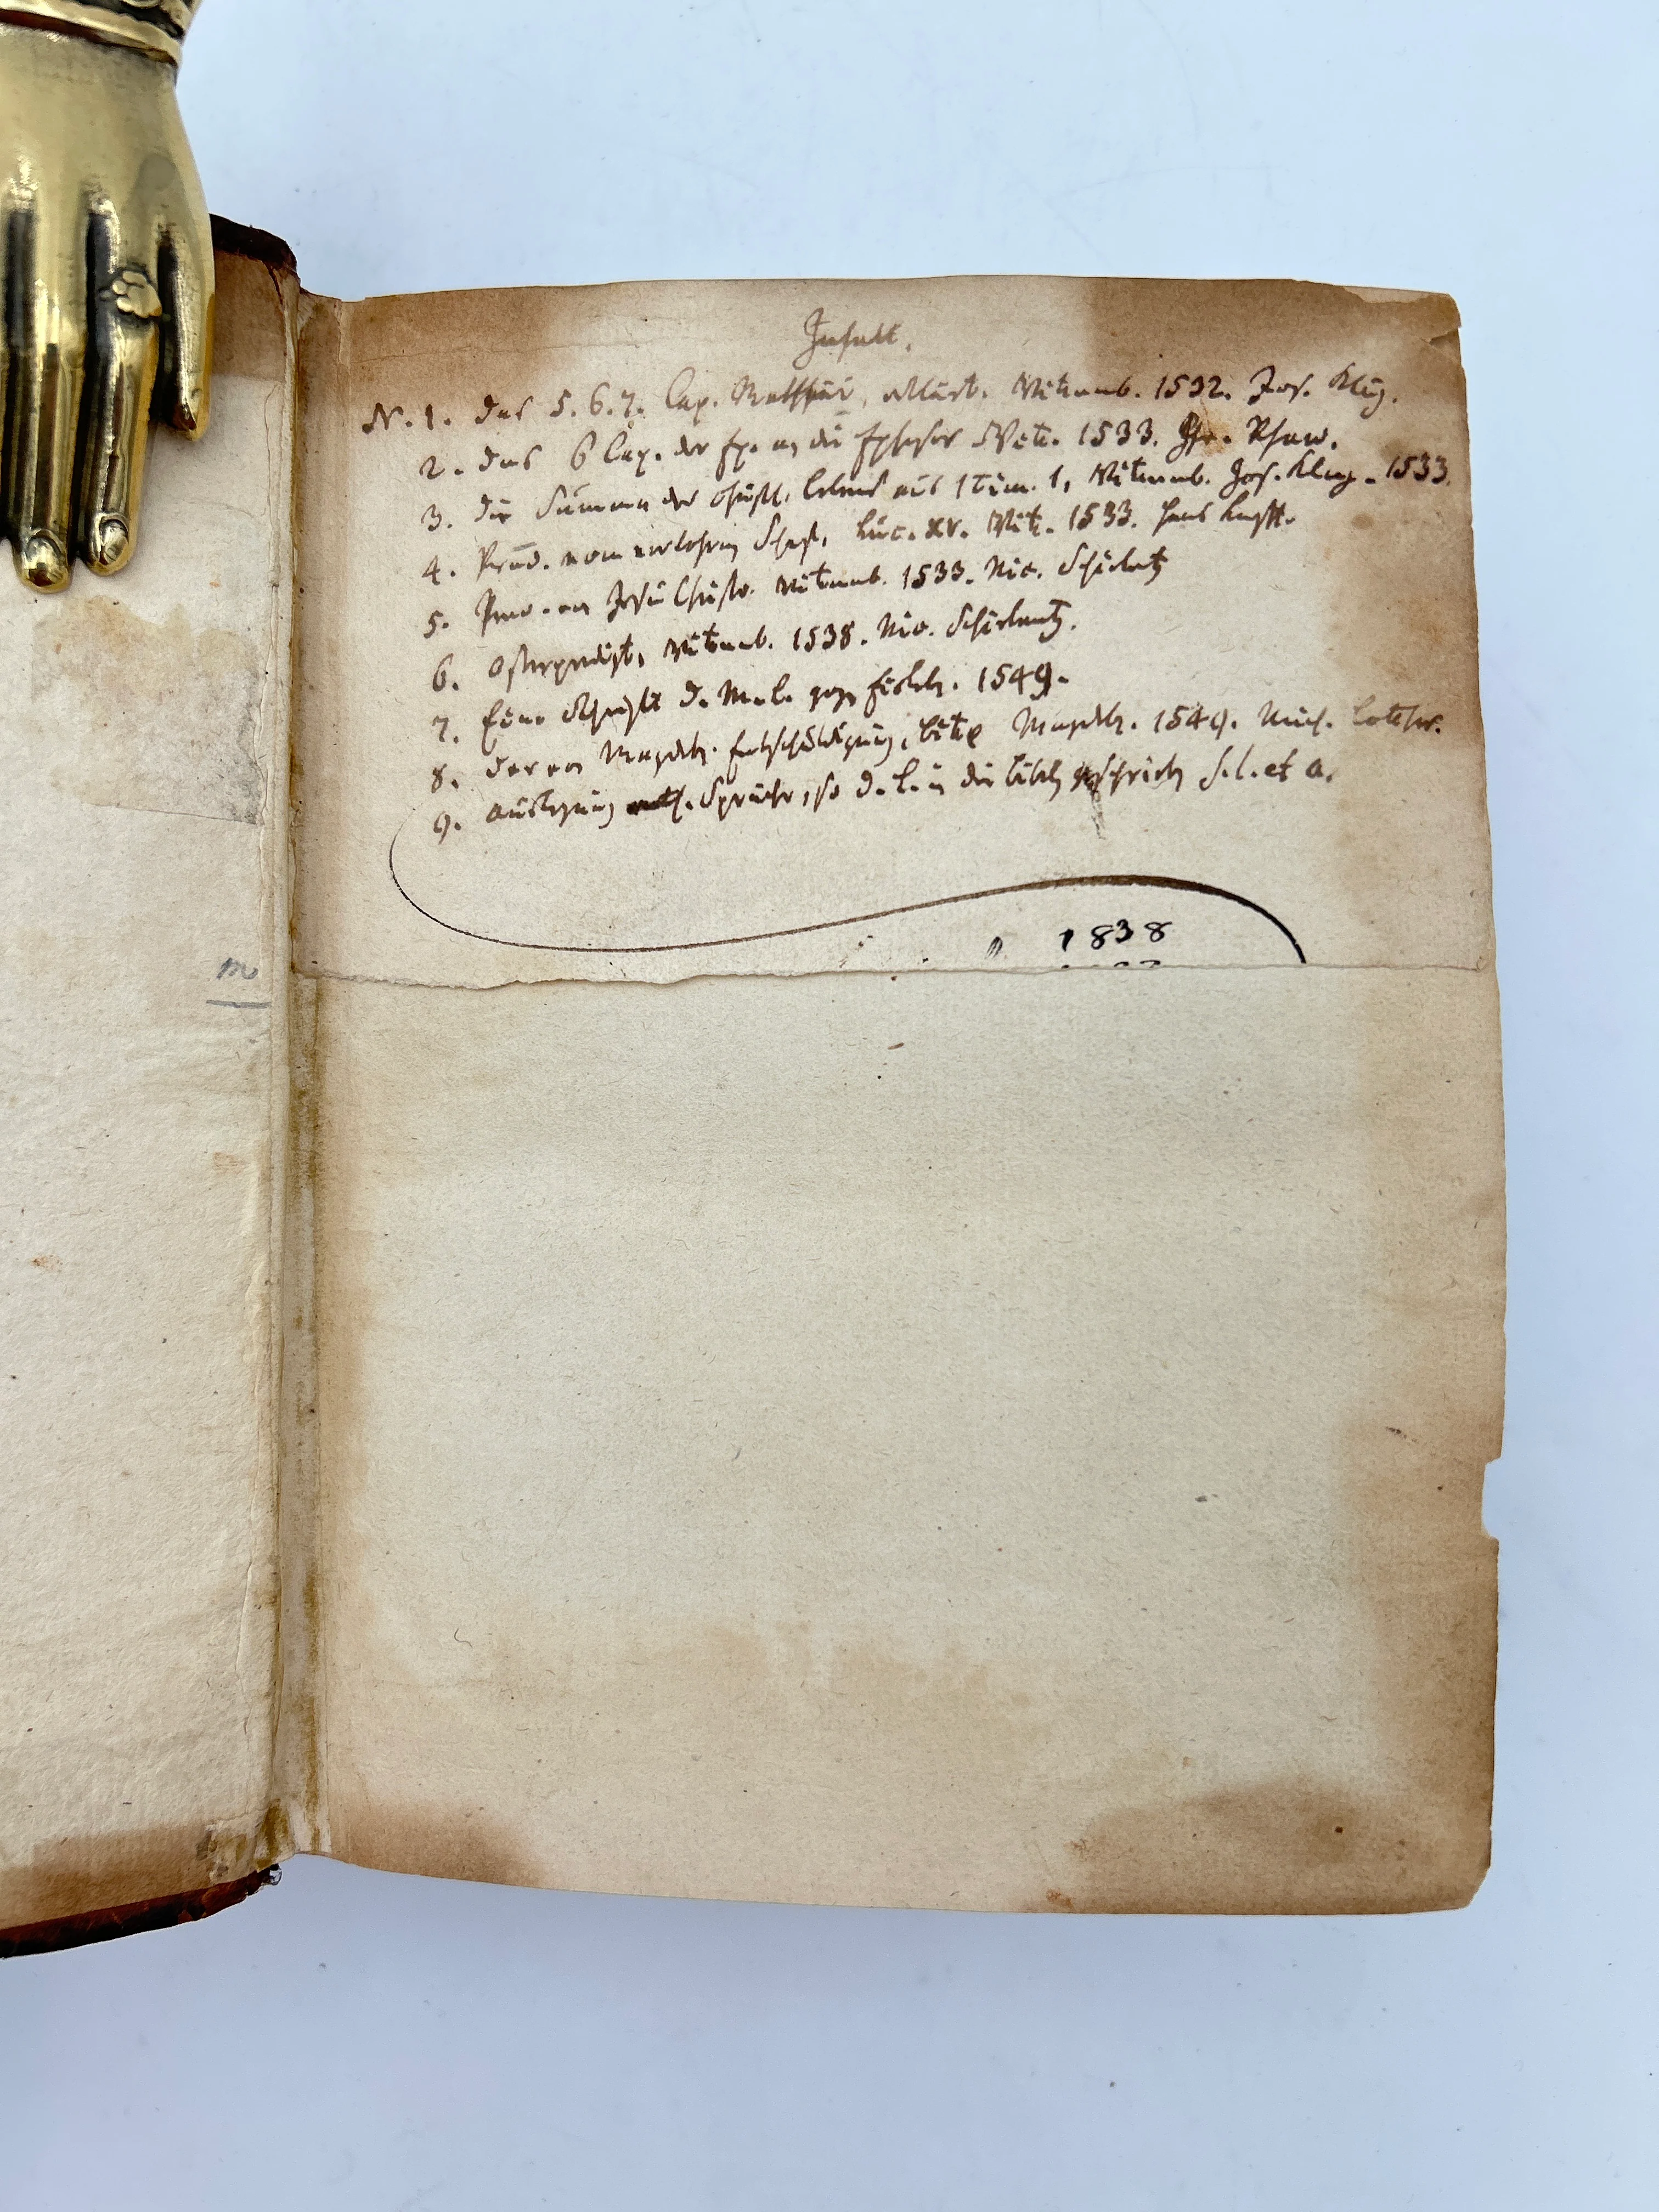 Inhalt.
N. 1. Das 5. 6. 7. Cap. Matthäi, erklärt. Wittemb. 1532. Jos. Klug.
2. Das 6 Cap. der Ep. an die Epheser Witt. 1533. Rhaw.
3. Die Summa des christl. Lebens aus 1 Tim. 1, Wittemb. Jos. Klug. 1533.
4. Pred. vom verlohrnen Schaf, Luc. XV. Witt. 1533. Hans Lufft.
5. Pred. von Jesu Christo. Wittemb. 1533. Nic. Schirlentz
6. Osterpredigt, Wittemb. 1538. Nic. Schirlentz.
7. Eine Schrifft D. M. L. geg. Eisleb. 1549.
8. Der von Magdeb. Entschuldigung, Bitte Magdeb. 1549. Mich. Lotther.
9. Auslegung Sprüche, so D. L. in die Bibeln geschrieben S. l. et a.
" 1838
m